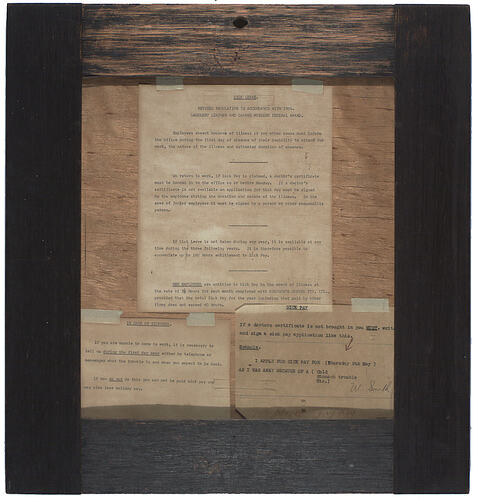 SICK LEAVE.
REVISED REGULATION IN ACCORDANCE WITH
SADDLERY LEATHER AND CANVAS WORKERS FEDERAL AWARD.
Employees absent because of illness or any other cause must inform
the office during the first day of absence of their inability to attend for
work, the nature of the illness and estimated duration of absence.
On return to work, if Sick Pay is claimed, a doctor's certificate
must be handed in to the office on or before Monday. If a doctor's
certificate is not available an application for Sick Pay must be signed
by the employee stating the duration and nature of the illness. In the
case of junior employees it must be signed by a parent or other responsible
person.
If Sick Leave is not taken during any year, it is available at any
time during the three following years. It is therefore possible to
accumulate up to 160 hours entitlement to Sick Pay.
NEW EMPLOYEES are entitled to Sick Pay in the event of illness at
the rate of hours for each month completed with
provided that the total Sick Pay for the year including that paid by other
firms does not exceed 40 hours.
IN CASE OF SICKNESS.
If you are unable to come to work, it is necessary to
tell us during the first day away either by telephone or
messenger what the trouble is and when you expect to be back.
If you do not do this you can not be paid sick pay and
may also lose holiday pay.
SICK PAY
If a doctors certificate is not brought in you MUST write
and sign a sick pay application like this.
Example.
I APPLY FOR SICK PAY FOR (Thursday 5th May )
AS I WAS AWAY BECAUSE OF A ( Cold
Stomach trouble
Etc.)
W. Smith